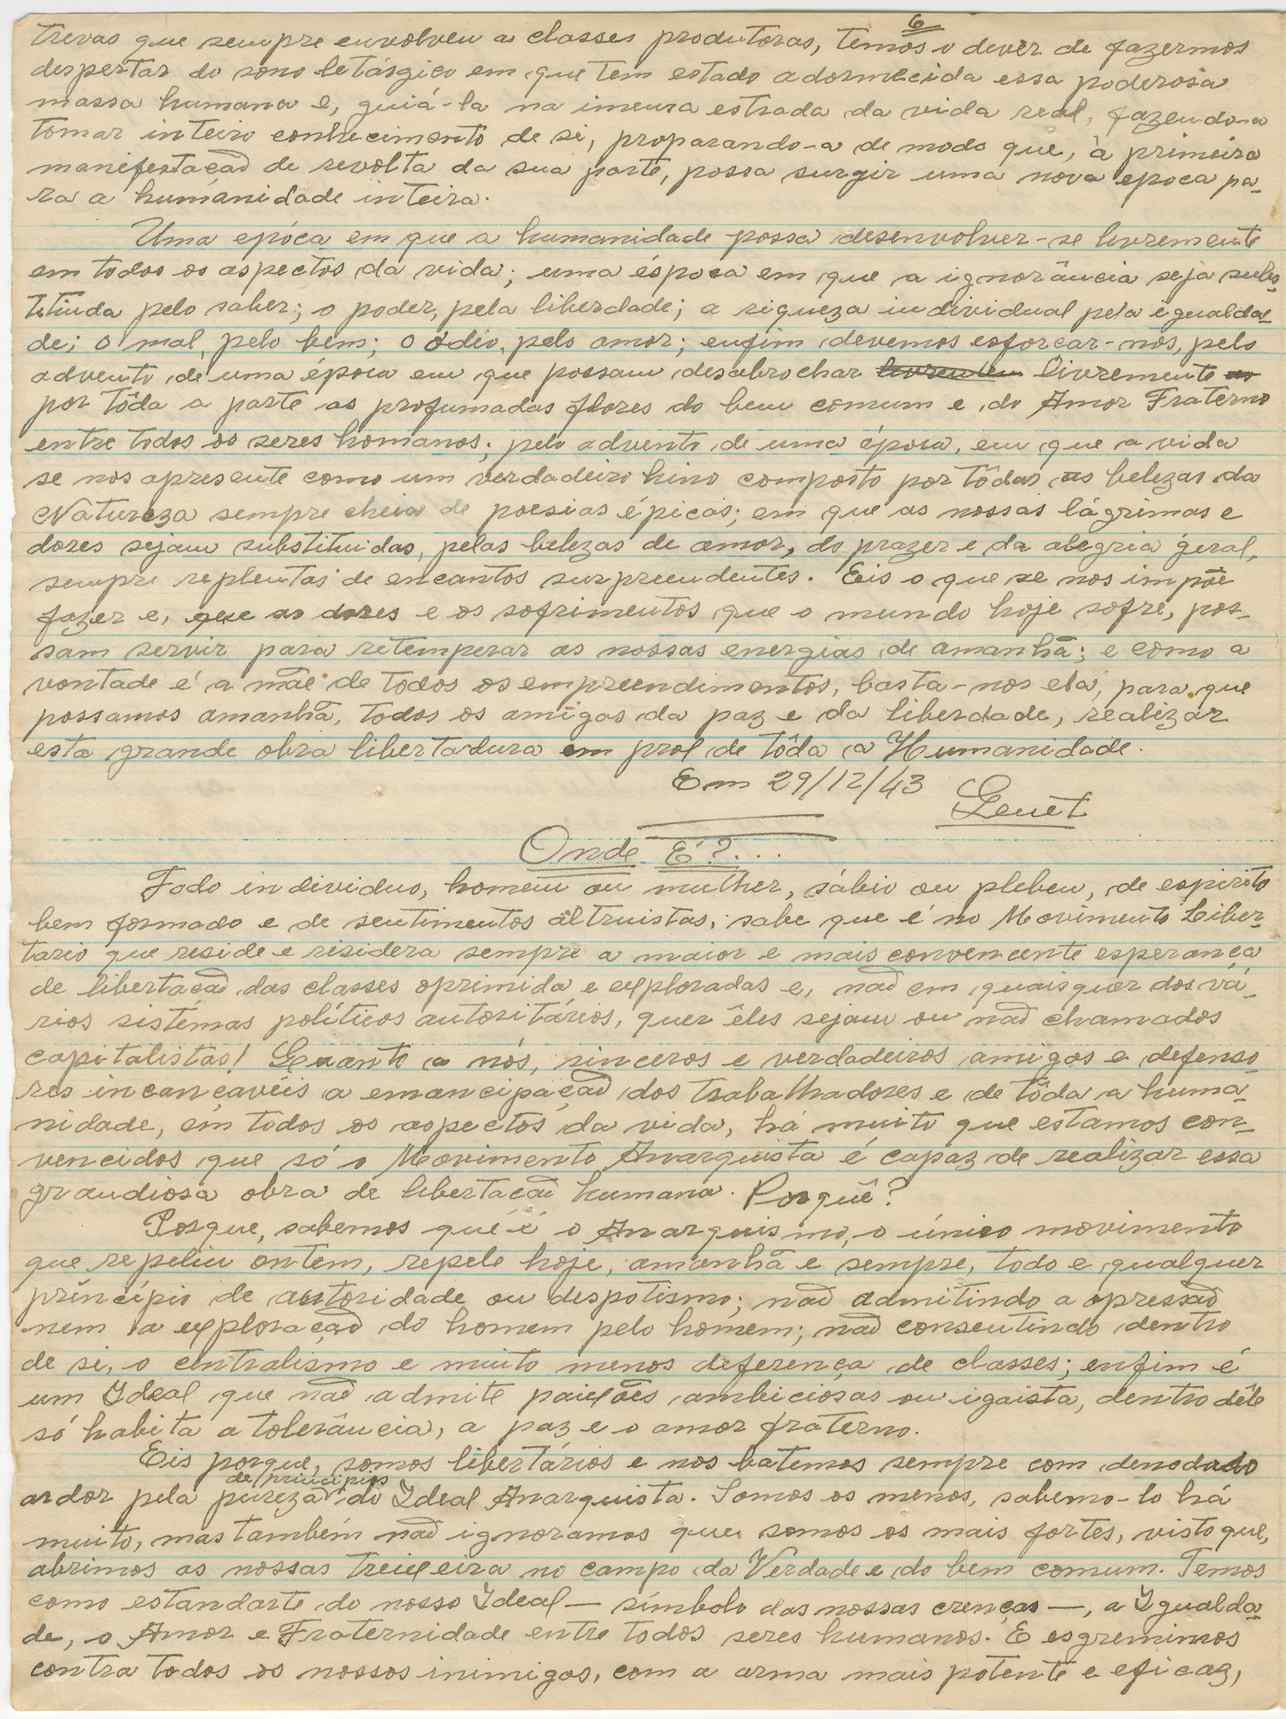 6
trevas que sempre envolveu as classes produtoras, temos o dever de fazermos
despertar do sono letárgico em que tem estado adormecida essa poderosa
massa humana e, guiá-la na imensa estrada da vida real, fazendo-a
tomar inteiro conhecimento de si, preparando-a de modo que, à primeira
manifestação de revolta da sua parte, possa surgir uma nova epoca pa-
ra a humanidade inteira.
Uma epóca em que a humanidade possa desenvolver-se livremente
em todos os aspectos da vida; uma época em que a ignorância seja subs-
tituida pelo saber; o poder, pela liberdade; a riqueza individual pela igualda-
de; o mal, pelo bem; o ódio, pelo amor; enfim devemos esforçar-nos, pelo
advento de uma época em que possam desabrochar livremente
por tôda a parte as profumadas flores do bem comum e do Amor Fraterno
entre todos os seres homanos; pelo advento de uma época, em que a vida
se nos apresente como um verdadeiro hino composto por tôdas as belezas da
Natureza sempre cheia de poesias épicas; em que as nossas lágrimas e
dores sejam substituidas, pelas belezas de amor, do prazer e da alegria geral,
sempre repletas de encantos surpreendentes. Eis o que se nos impõe
fazer e, que as dores e os sofrimentos que o mundo hoje sofre, pos-
sam servir para retemperar as nossas energias de amanhã; e como a
vontade é a mãe de todos os empreendimentos, basta-nos ela, para que
possamos amanhã, todos os amigos da paz e da liberdade, realizar
esta grande obra libertadora em prol de tôda a Humanidade.
Em 29/12/43
Onde É?...
Todo individuo, homem ou mulher, sábio ou plebeu, de espirito
bem formado e de sentimentos altruistas, sabe que é no Movimento Liber-
tario que reside e risidera sempre a maior e mais convencente esperança
de libertação das classes oprimida e exploradas e, não em quaisquer dos vá-
rios sistémas políticos autoritários, quer êles sejam ou não chamados
capitalistas! Quanto a nós, sinceros e verdadeiros amigos e defenso
res incançavéis a emancipação dos trabalhadores e de tôda a huma-
nidade, em todos os aspectos da vida, há muito que estamos con-
vencidos que só o Movimento Anarquista é capaz de realizar essa
grandiosa obra de libertação humana. Porquê?
Porque, sabemos que é o Anarquismo, o único movimento
que repeliu ontem, repele hoje, amanhã e sempre, todo e qualquer
princípio de autoridade ou despotismo; não admitindo a opressão
nem a exploração do homem pelo homem; não consentindo dentro
de si, o centralismo e muito menos diferença de classes; enfim é
um Ideal que não admite paixões ambiciosas ou igaista, dentro dêle
só habita a tolerância, a paz e o amor fraterno.
Eis porque, somos libertários e nos batemos sempre com denodado
ardor pela pureza de principios do Ideal Anarquista. Somos os menos, sabemo-lo há
muito, mas também não ignoramos que somos os mais fortes, visto que,
abrimos as nossas treixeira no campo da Verdade e do bem comum. Temos
como estandarte do nosso Ideal — símbolo das nossas crenças —, a Igualda-
de, o Amor e Fraternidade entre todos seres humanos. E esgremimos
contra todos os nossos inimigos, com a arma mais potente e eficaz,